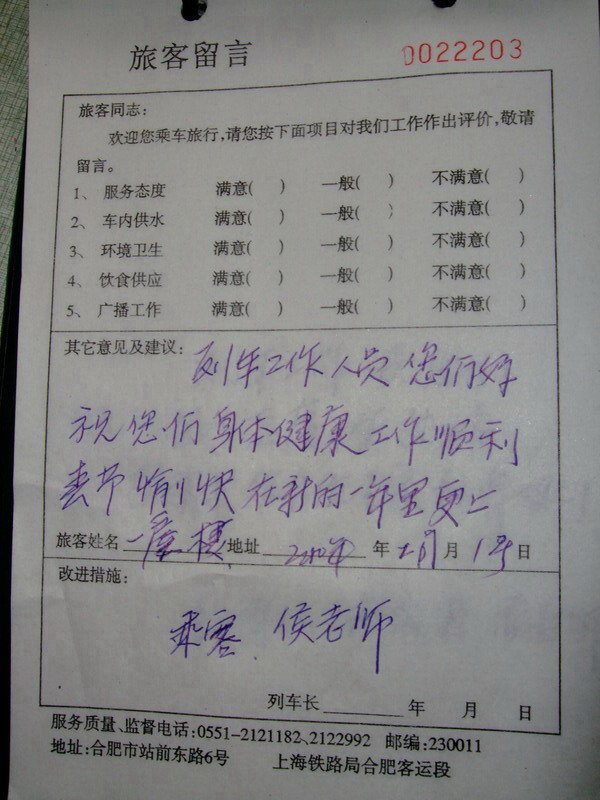 旅客留言
0022203
旅客同志:
欢迎您乘车旅行,请您按下面项目对我们工作作出评价,敬请
留言。
1、 服务态度 满意( ) 一般( ) 不满意( )
2、 车内供水 满意( ) 一般( ) 不满意( )
3、 环境卫生 满意( ) 一般( ) 不满意( )
4、 饮食供应 满意( ) 一般( ) 不满意( )
5、 广播工作 满意( ) 一般( ) 不满意( )
其它意见及建议: 列车工作人员 您们好
祝您们身体健康 工作顺利
春节愉快 在新的一年里更上
旅客姓名 一层楼 地址 2010年 年 月 1号 日
改进措施:
乘客 侯老师
列车长 年 月 日
服务质量、监督电话:0551-2121182、2122992 邮编:230011
地址:合肥市站前东路6号 上海铁路局合肥客运段